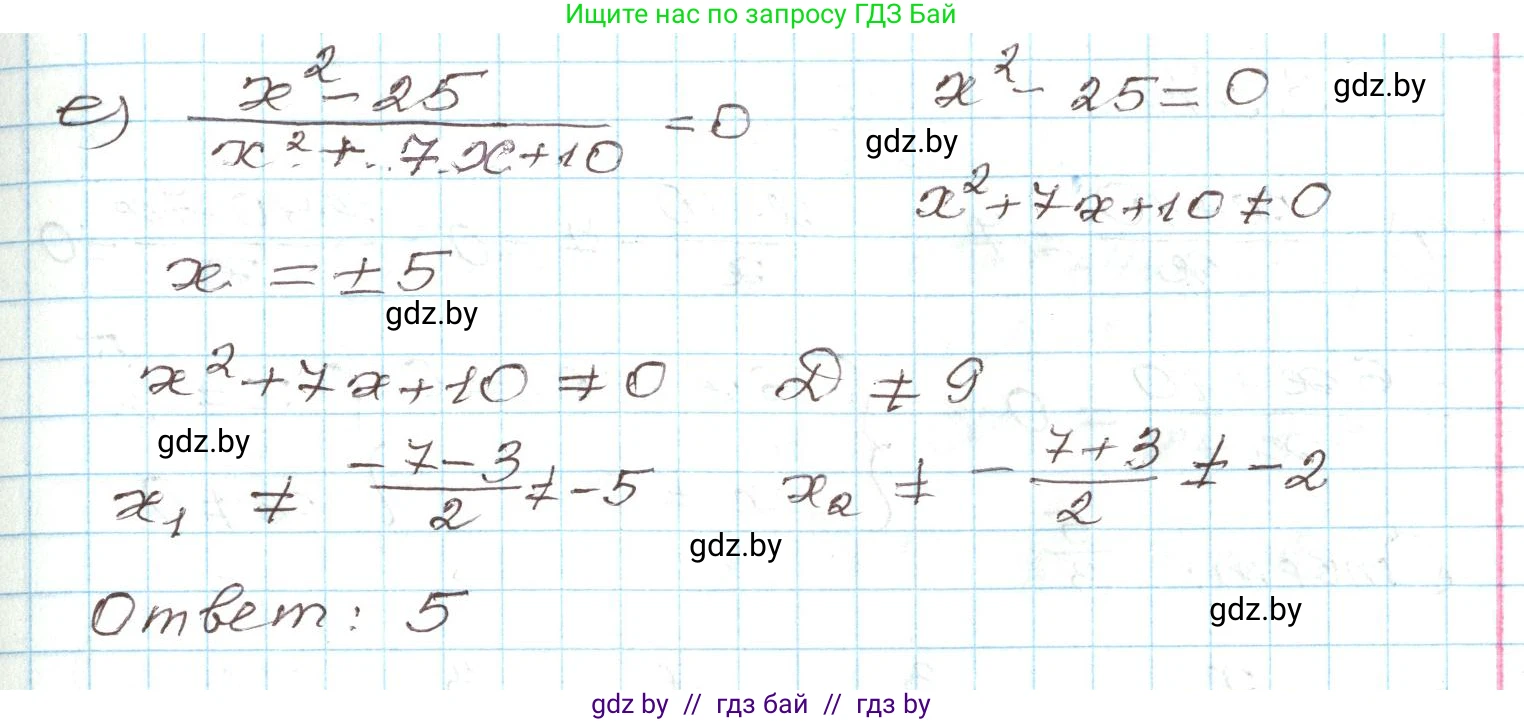 Ищите нас по запросу ГДЗ Бай
е) (x² - 25)/(x² + 7x + 10) = 0
x² - 25 = 0
gdz.by
gdz.by
x² + 7x + 10 ≠ 0
x = ± 5
gdz.by
x² + 7x + 10 ≠ 0 D ≠ 9
gdz.by
x₁ ≠ (-7-3)/2 ≠ -5 x₂ ≠ -(7+3)/2 ≠ -2
gdz.by
Ответ: 5
gdz.by
gdz by // гдз бай // гдз by